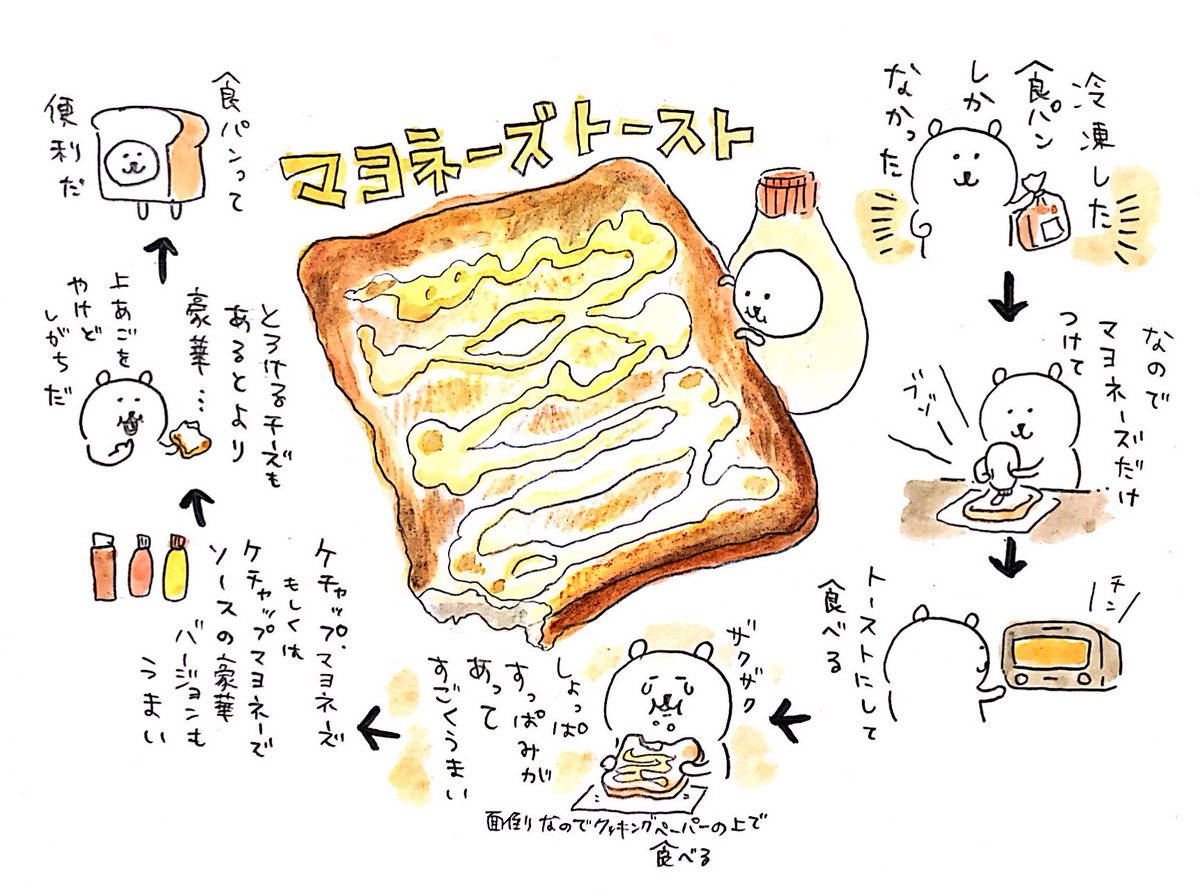 マヨネーズトースト
冷凍した
食パン
しか
なかった
なので
マヨネーズだけ
つけて
ブブ
チン
トーストにして
食べる
ザクザク
しょっぱ
すっぱみが
あって
すごくうまい
面倒なのでクッキングペーパーの上で
食べる
ケチャップ・マヨネーズ
もしくは
ケチャップマヨネーズで
ソースの豪華
バージョンも
うまい
とろけるチーズも
あるとより
豪華…
上あごを
やけど
しがちだ
食パンって
便利だ